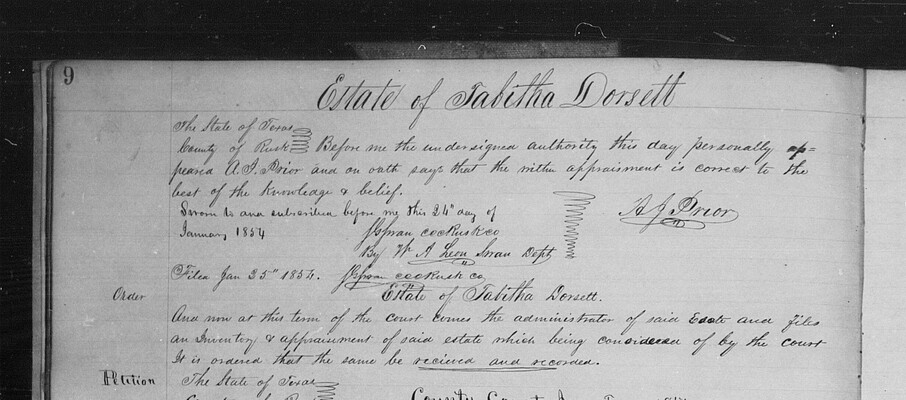 9
Estate of Tabitha Dorsett
The State of Texas
County of Rusk Before me the undersigned authority this day personally ap=
peared A. J. Prior and on oath says that the within appraisment is correct to the
best of the Knowledge & belief.
Sworn to and subscribed before me this 24" day of
A J Prior
January 1854
By W A Leon Swan Dept
Filed Jan 25" 1854.
Estate of Tabitha Dorsett.
Order
And now at this term of the court comes the administrator of said Esate and files
an Inventory & appraisment of said estate which being considered of by the court
It is ordered that the same be recieved and recorded.
Petition
The State of Texas